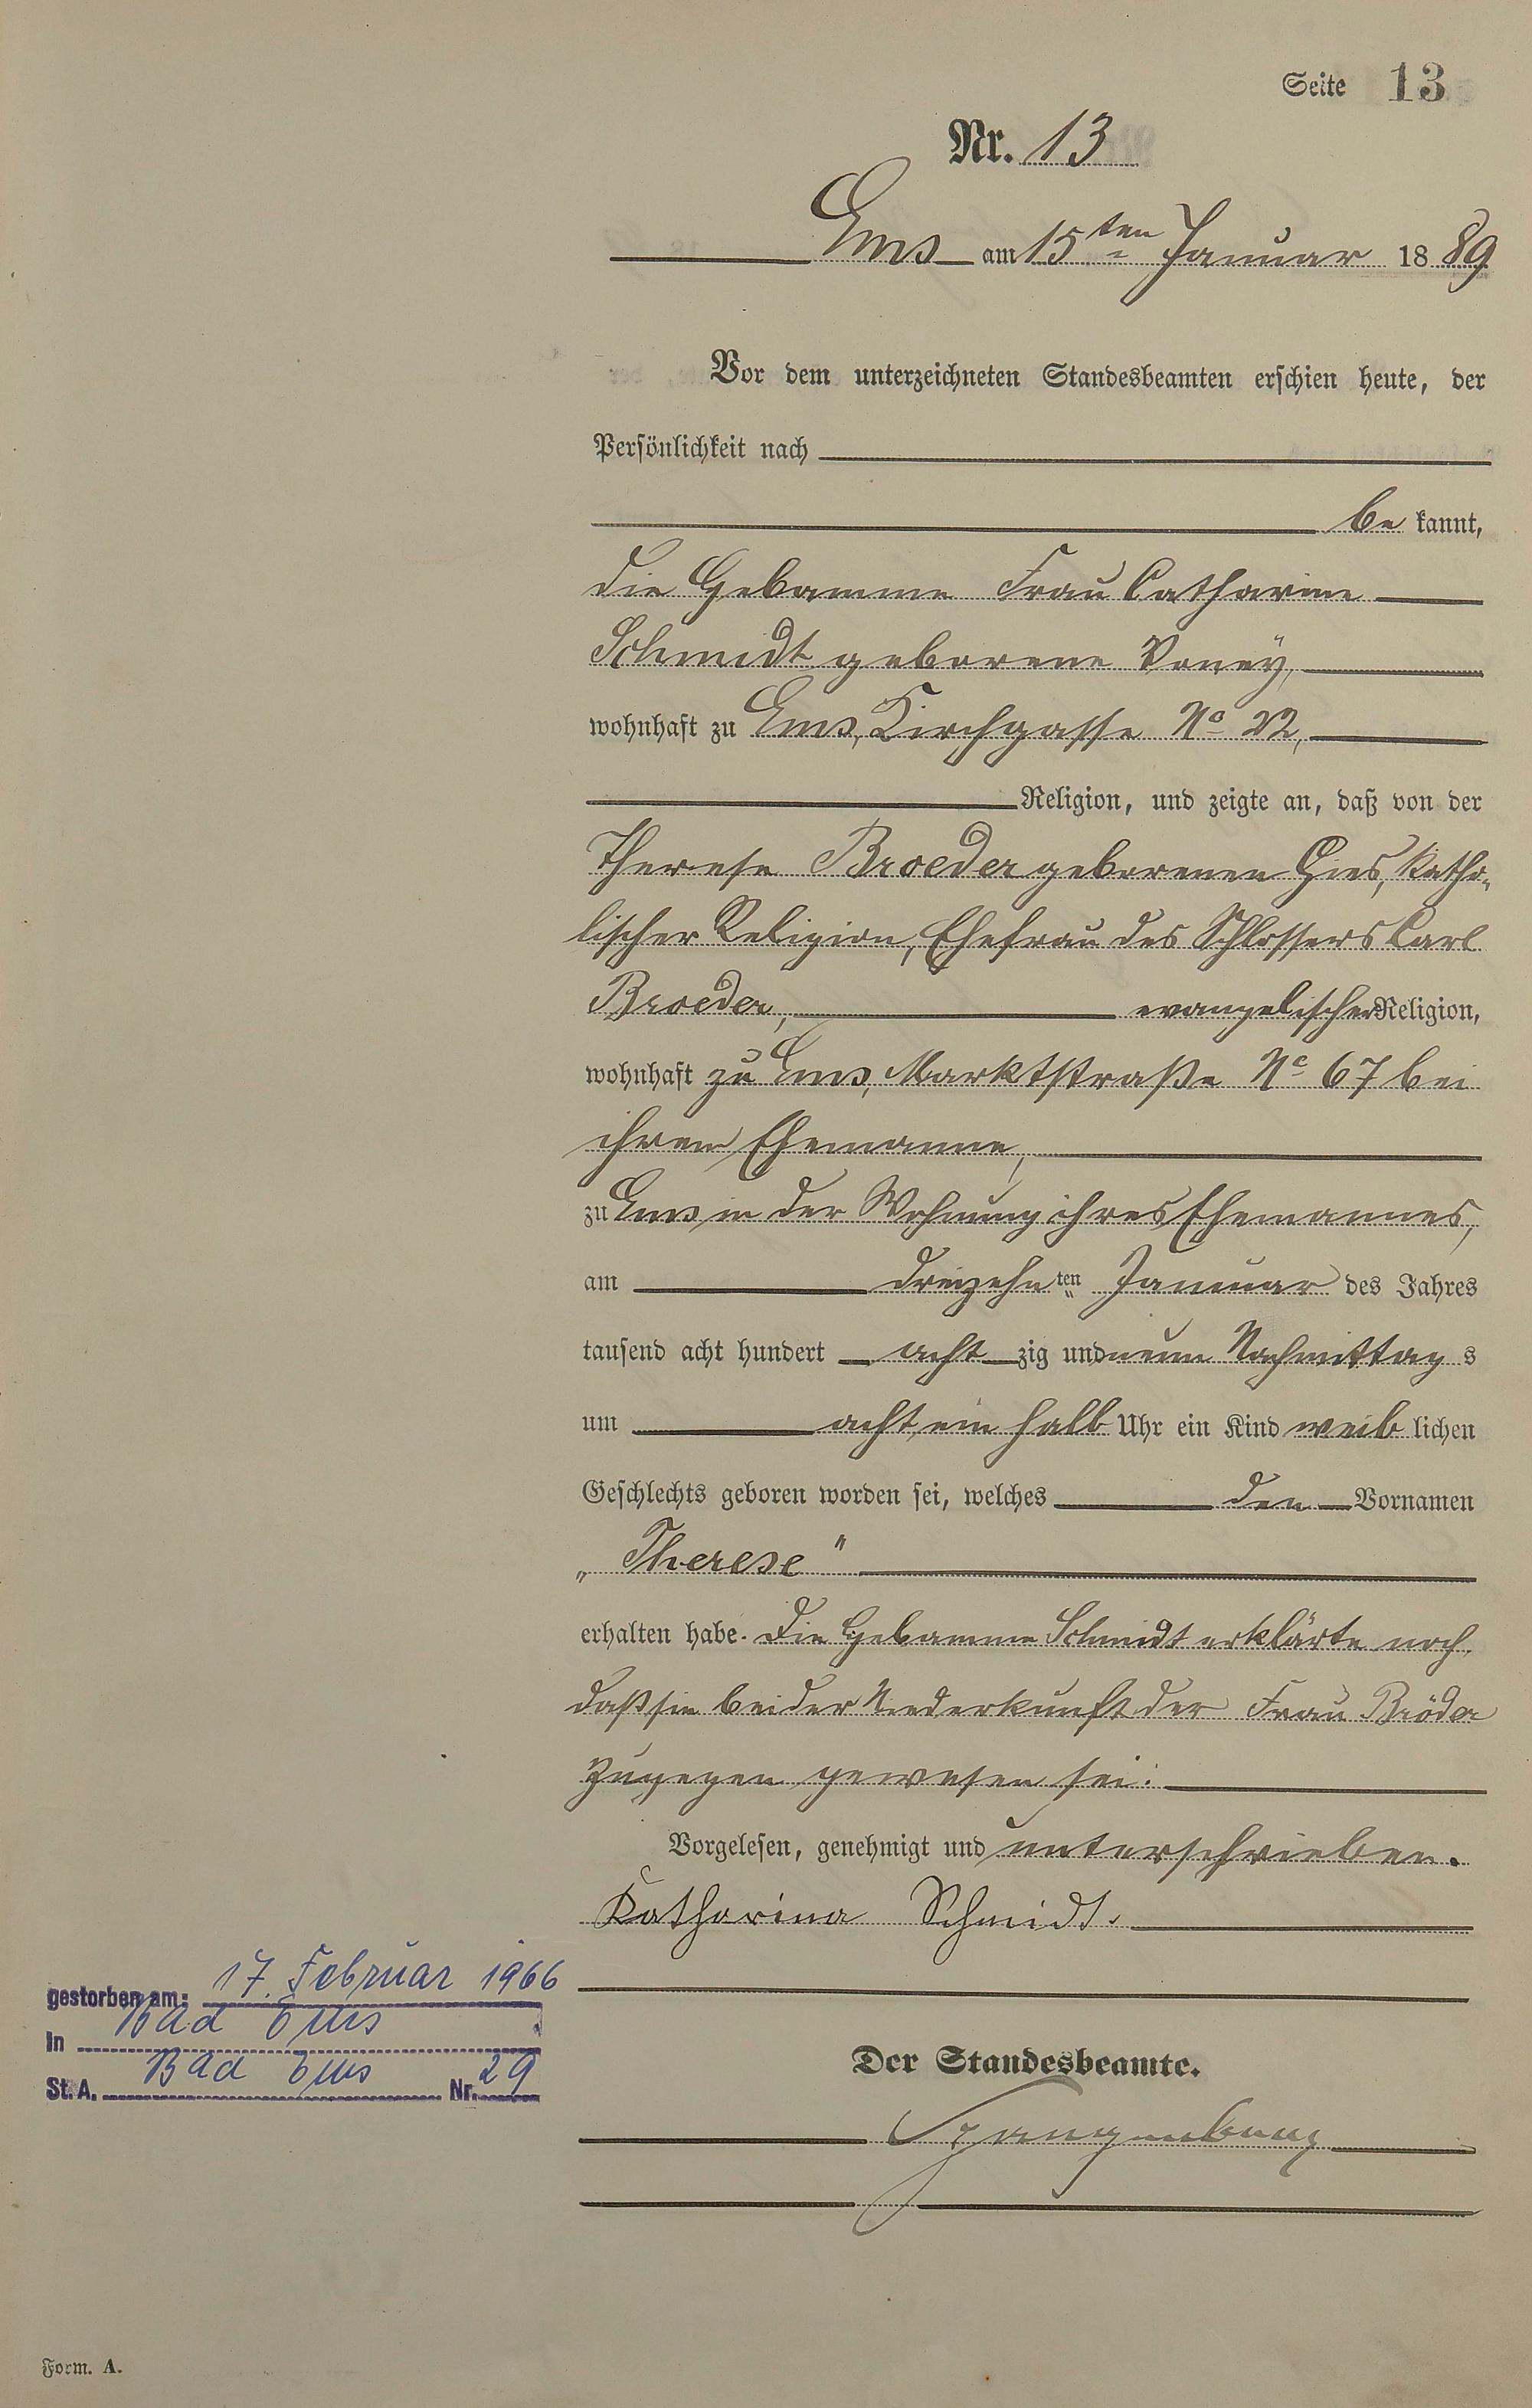 Seite 13
Nr. 13
Ems am 15ten Januar 1889
Vor dem unterzeichneten Standesbeamten erschien heute, der
Persönlichkeit nach
be kannt,
die Hebamme Frau Catharine
Schmidt geborene
wohnhaft zu Ems, Kirchgasse No 22,
Religion, und zeigte an, daß von der
Therese Broeder geborenen Gies, katho-
lischer Religion, Ehefrau des Schlossers Carl
Broeder, evangelischer Religion,
wohnhaft zu Ems, Marktstraße No 67 bei
ihrem Ehemanne,
zu Ems in der Wohnung ihres Ehemannes,
am dreizehnten Januar des Jahres
tausend acht hundert acht zig und neun Nachmittag s
um acht ein halb Uhr ein Kind weib lichen
Geschlechts geboren worden sei, welches den Vornamen
„Therese"
erhalten habe. Die Hebamme Schmidt erklärte noch,
daß sie bei der Niederkunft der Frau Bröder
zugegen gewesen sei.
Vorgelesen, genehmigt und unterschrieben.
Katharina Schmidt.
gestorben am: 17. Februar 1966
In Bad Ems
St. A. Bad Ems Nr. 29
Der Standesbeamte.
Form. A.